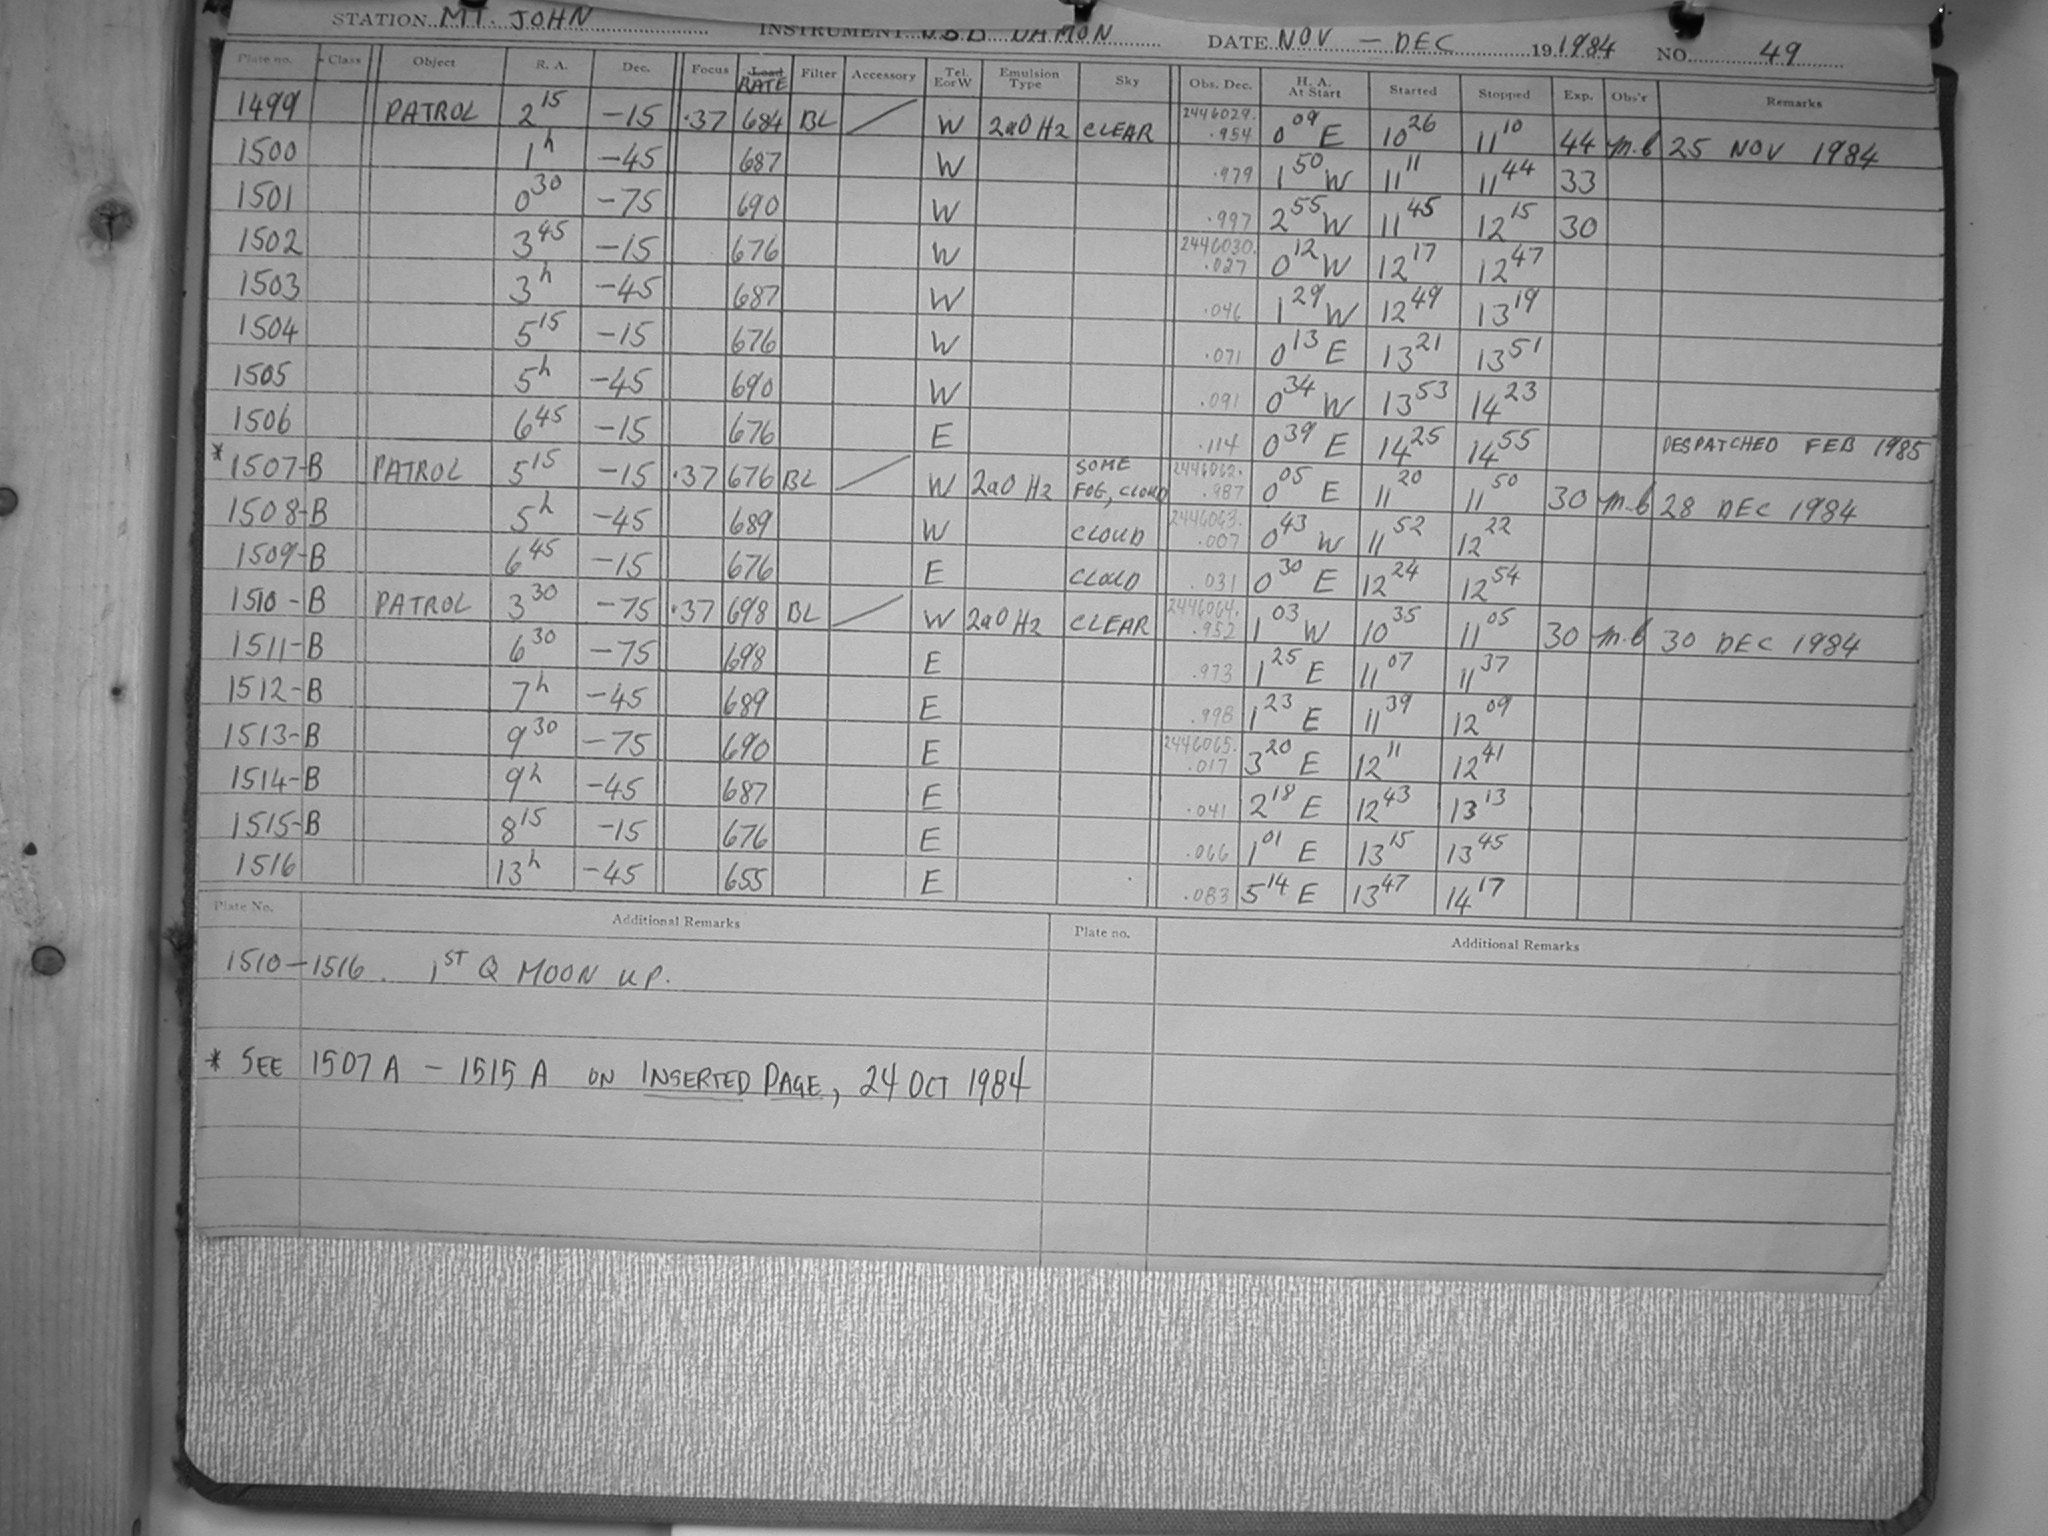 STATION MT. JOHN INSTRUMENT DAMON DATE NOV - DEC 19 1984 NO. 49
Plate no. Class Object R. A. Dec. Focus Load RATE Filter Accessory Tel. E or W Emulsion Type Sky Obs. Dec. H. A. At Start Started Stopped Exp. Obs'r Remarks
1499 PATROL 2 15 -15 .37 684 BL / W 2aO H2 CLEAR 2446029. .954 0 09 E 10 26 11 10 44 m.b 25 NOV 1984
1500 1 h -45 687 W .979 1 50 W 11 11 11 44 33
1501 0 30 -75 690 W .997 2 55 W 11 45 12 15 30
1502 3 45 -15 676 W 2446030. .027 0 12 W 12 17 12 47
1503 3 h -45 687 W .046 1 29 W 12 49 13 19
1504 5 15 -15 676 W .071 0 13 E 13 21 13 51
1505 5 h -45 690 W .091 0 34 W 13 53 14 23
1506 6 45 -15 676 E .114 0 39 E 14 25 14 55 DESPATCHED FEB 1985
* 1507-B PATROL 5 15 -15 .37 676 BL / W 2aO H2 SOME FOG, CLOUD 2446062. .987 0 05 E 11 20 11 50 30 m.b 28 DEC 1984
1508-B 5 h -45 689 W CLOUD 2446063. .007 0 43 W 11 52 12 22
1509-B 6 45 -15 676 E CLOUD .031 0 30 E 12 24 12 54
1510-B PATROL 3 30 -75 .37 698 BL / W 2aO H2 CLEAR 2446064. .952 1 03 W 10 35 11 05 30 m.b 30 DEC 1984
1511-B 6 30 -75 698 E .973 1 25 E 11 07 11 37
1512-B 7 h -45 689 E .998 1 23 E 11 39 12 09
1513-B 9 30 -75 690 E 2446065. .017 3 20 E 12 11 12 41
1514-B 9 h -45 687 E .041 2 18 E 12 43 13 13
1515-B 8 15 -15 676 E .066 1 01 E 13 15 13 45
1516 13 h -45 655 E .083 5 14 E 13 47 14 17
Plate No. Additional Remarks Plate no. Additional Remarks
1510-1516. 1ST Q MOON UP.
* SEE 1507A - 1515A ON INSERTED PAGE, 24 OCT 1984